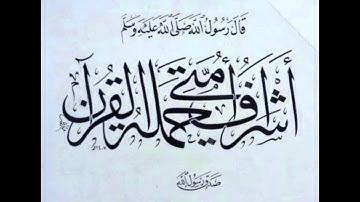 قَالَ رَسُولُ اللهِ صَلَّى اللهُ عَلَيْهِ وَسَلَّمَ
أَشْرَافُ أُمَّتِي حَمَلَةُ الْقُرْآنِ
صَدَقَ رَسُولُ اللهِ